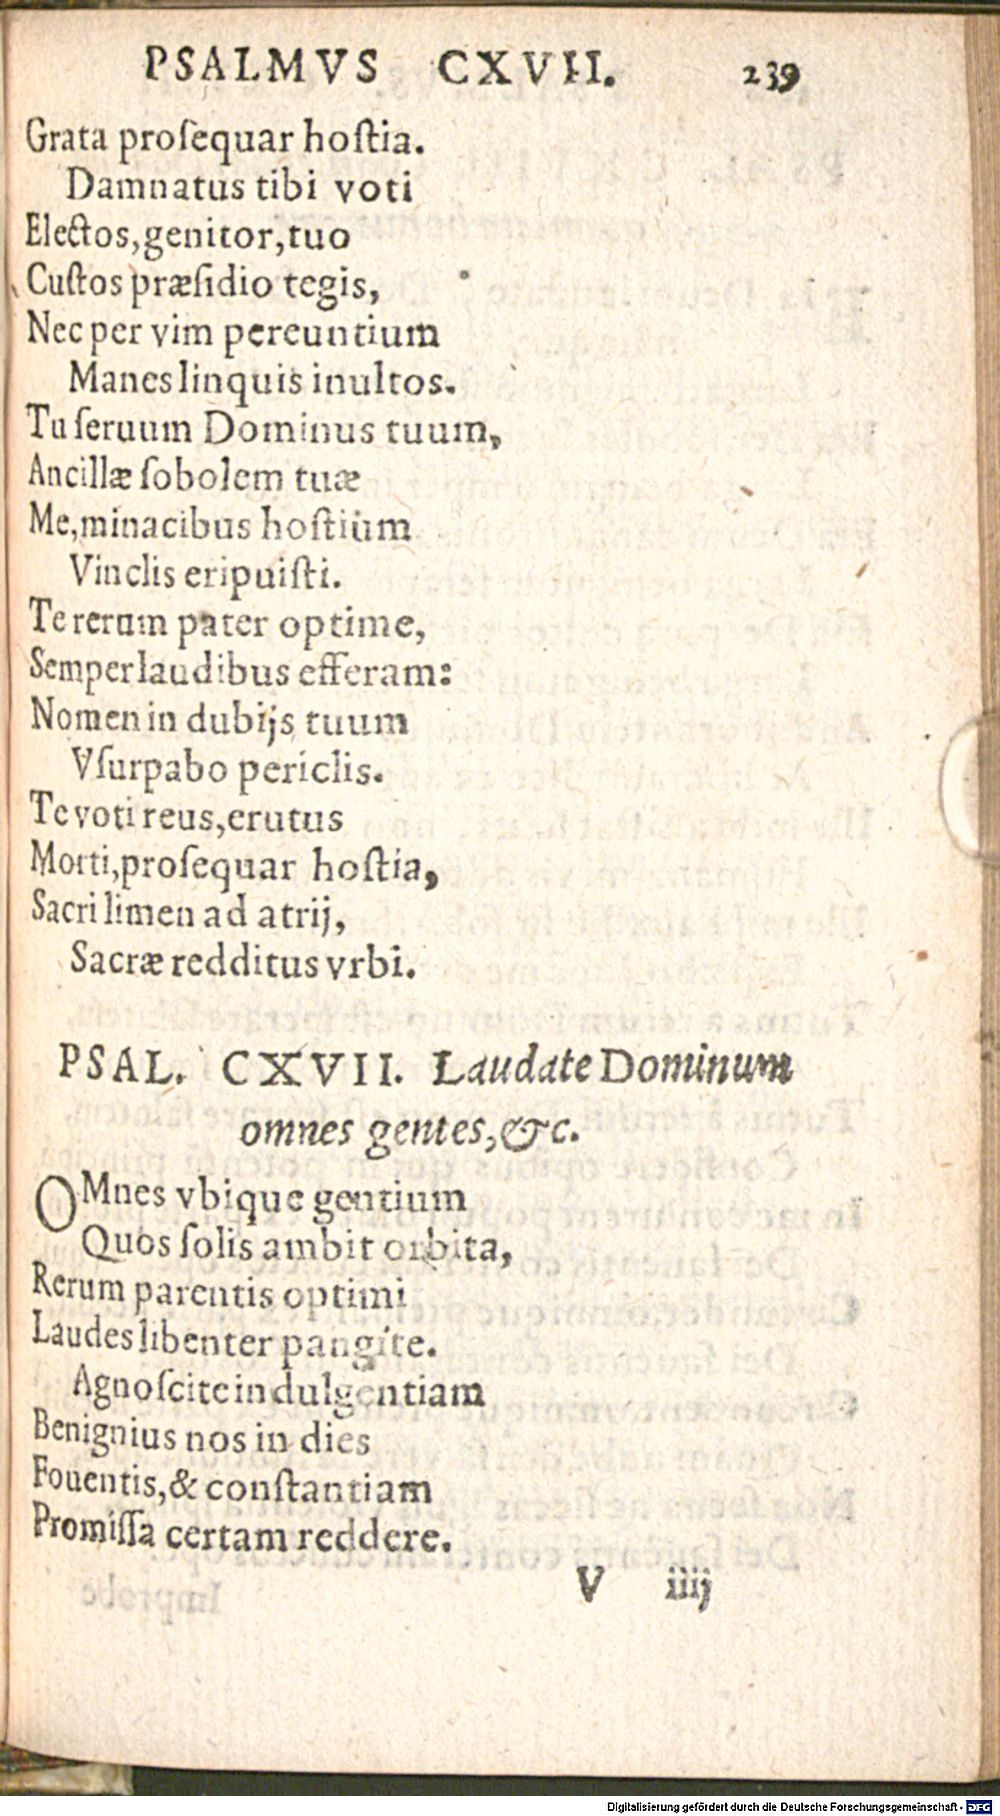 PSALMVS CXVII. 239
Grata proſequar hoſtia.
Damnatus tibi voti
Electos, genitor, tuo
Cuſtos præſidio tegis,
Nec per vim pereuntium
Manes linquis inultos.
Tu ſeruum Dominus tuum,
Ancillæ ſobolem tuæ
Me, minacibus hoſtium
Vinclis eripuiſti.
Te rerum pater optime,
Semper laudibus efferam:
Nomen in dubijs tuum
Vſurpabo periclis.
Te voti reus, erutus
Morti, proſequar hoſtia,
Sacri limen ad atrij,
Sacræ redditus vrbi.
PSAL. CXVII. Laudate Dominum
omnes gentes, &c.
OMnes vbique gentium
Quos ſolis ambit orbita,
Rerum parentis optimi
Laudes libenter pangite.
Agnoſcite indulgentiam
Benignius nos in dies
Fouentis, & conſtantiam
Promiſſa certam reddere.
V iiij
Digitalisierung gefördert durch die Deutsche Forschungsgemeinschaft - DFG